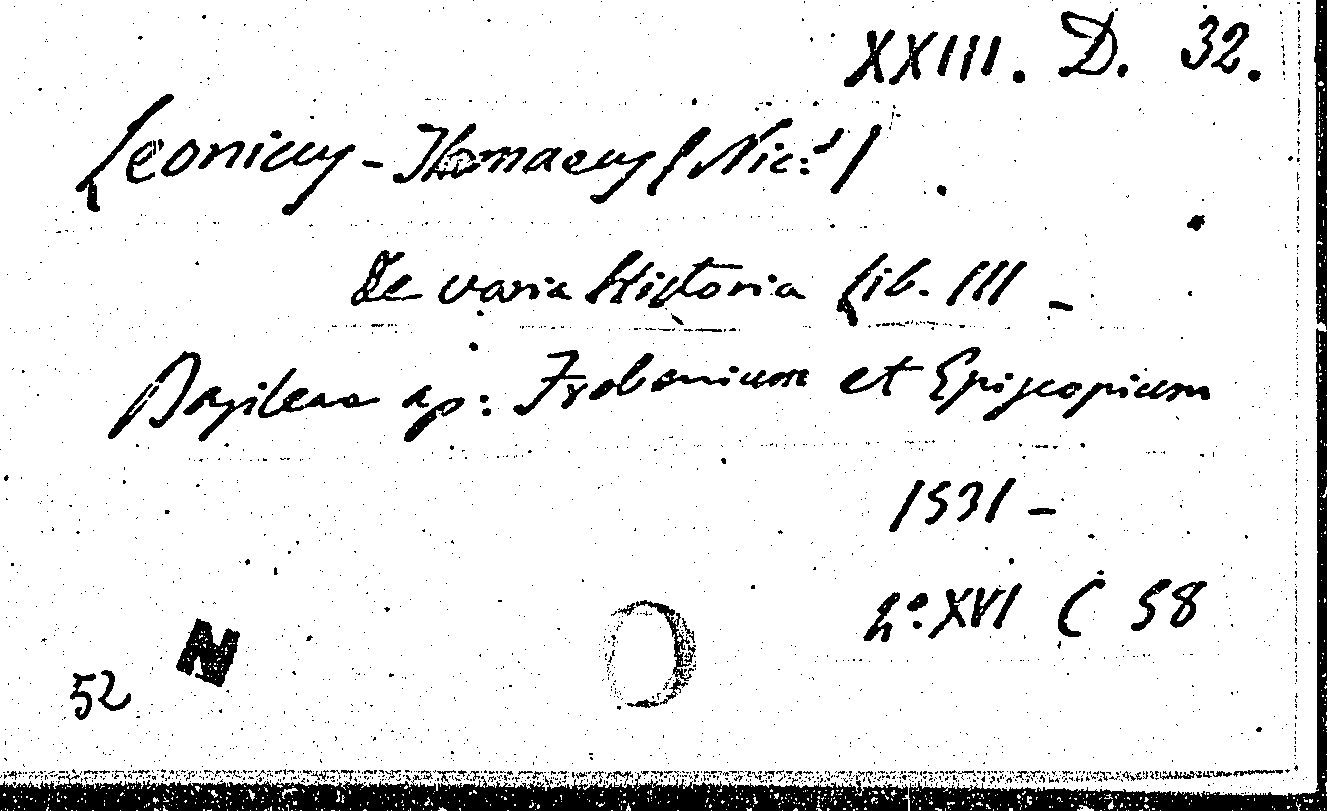 XXIII. D. 32.
Leonicus-Thomaeus (Nic:s)
De varia Historia Lib. III -
Basileae ap: Frobenium et Episcopium
1531 -
2º XVI C 58
N
52